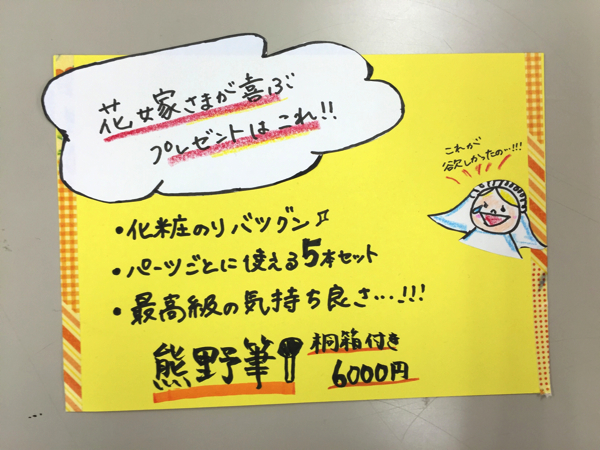 花女家さまが喜ぶ
プレゼントはこれ!!
これが
欲しかったの…!!!
・化粧のりバツグン!!
・パーツごとに使える5本セット
・最高級の気持ち良さ…!!!
熊野筆
桐箱付き
6000円